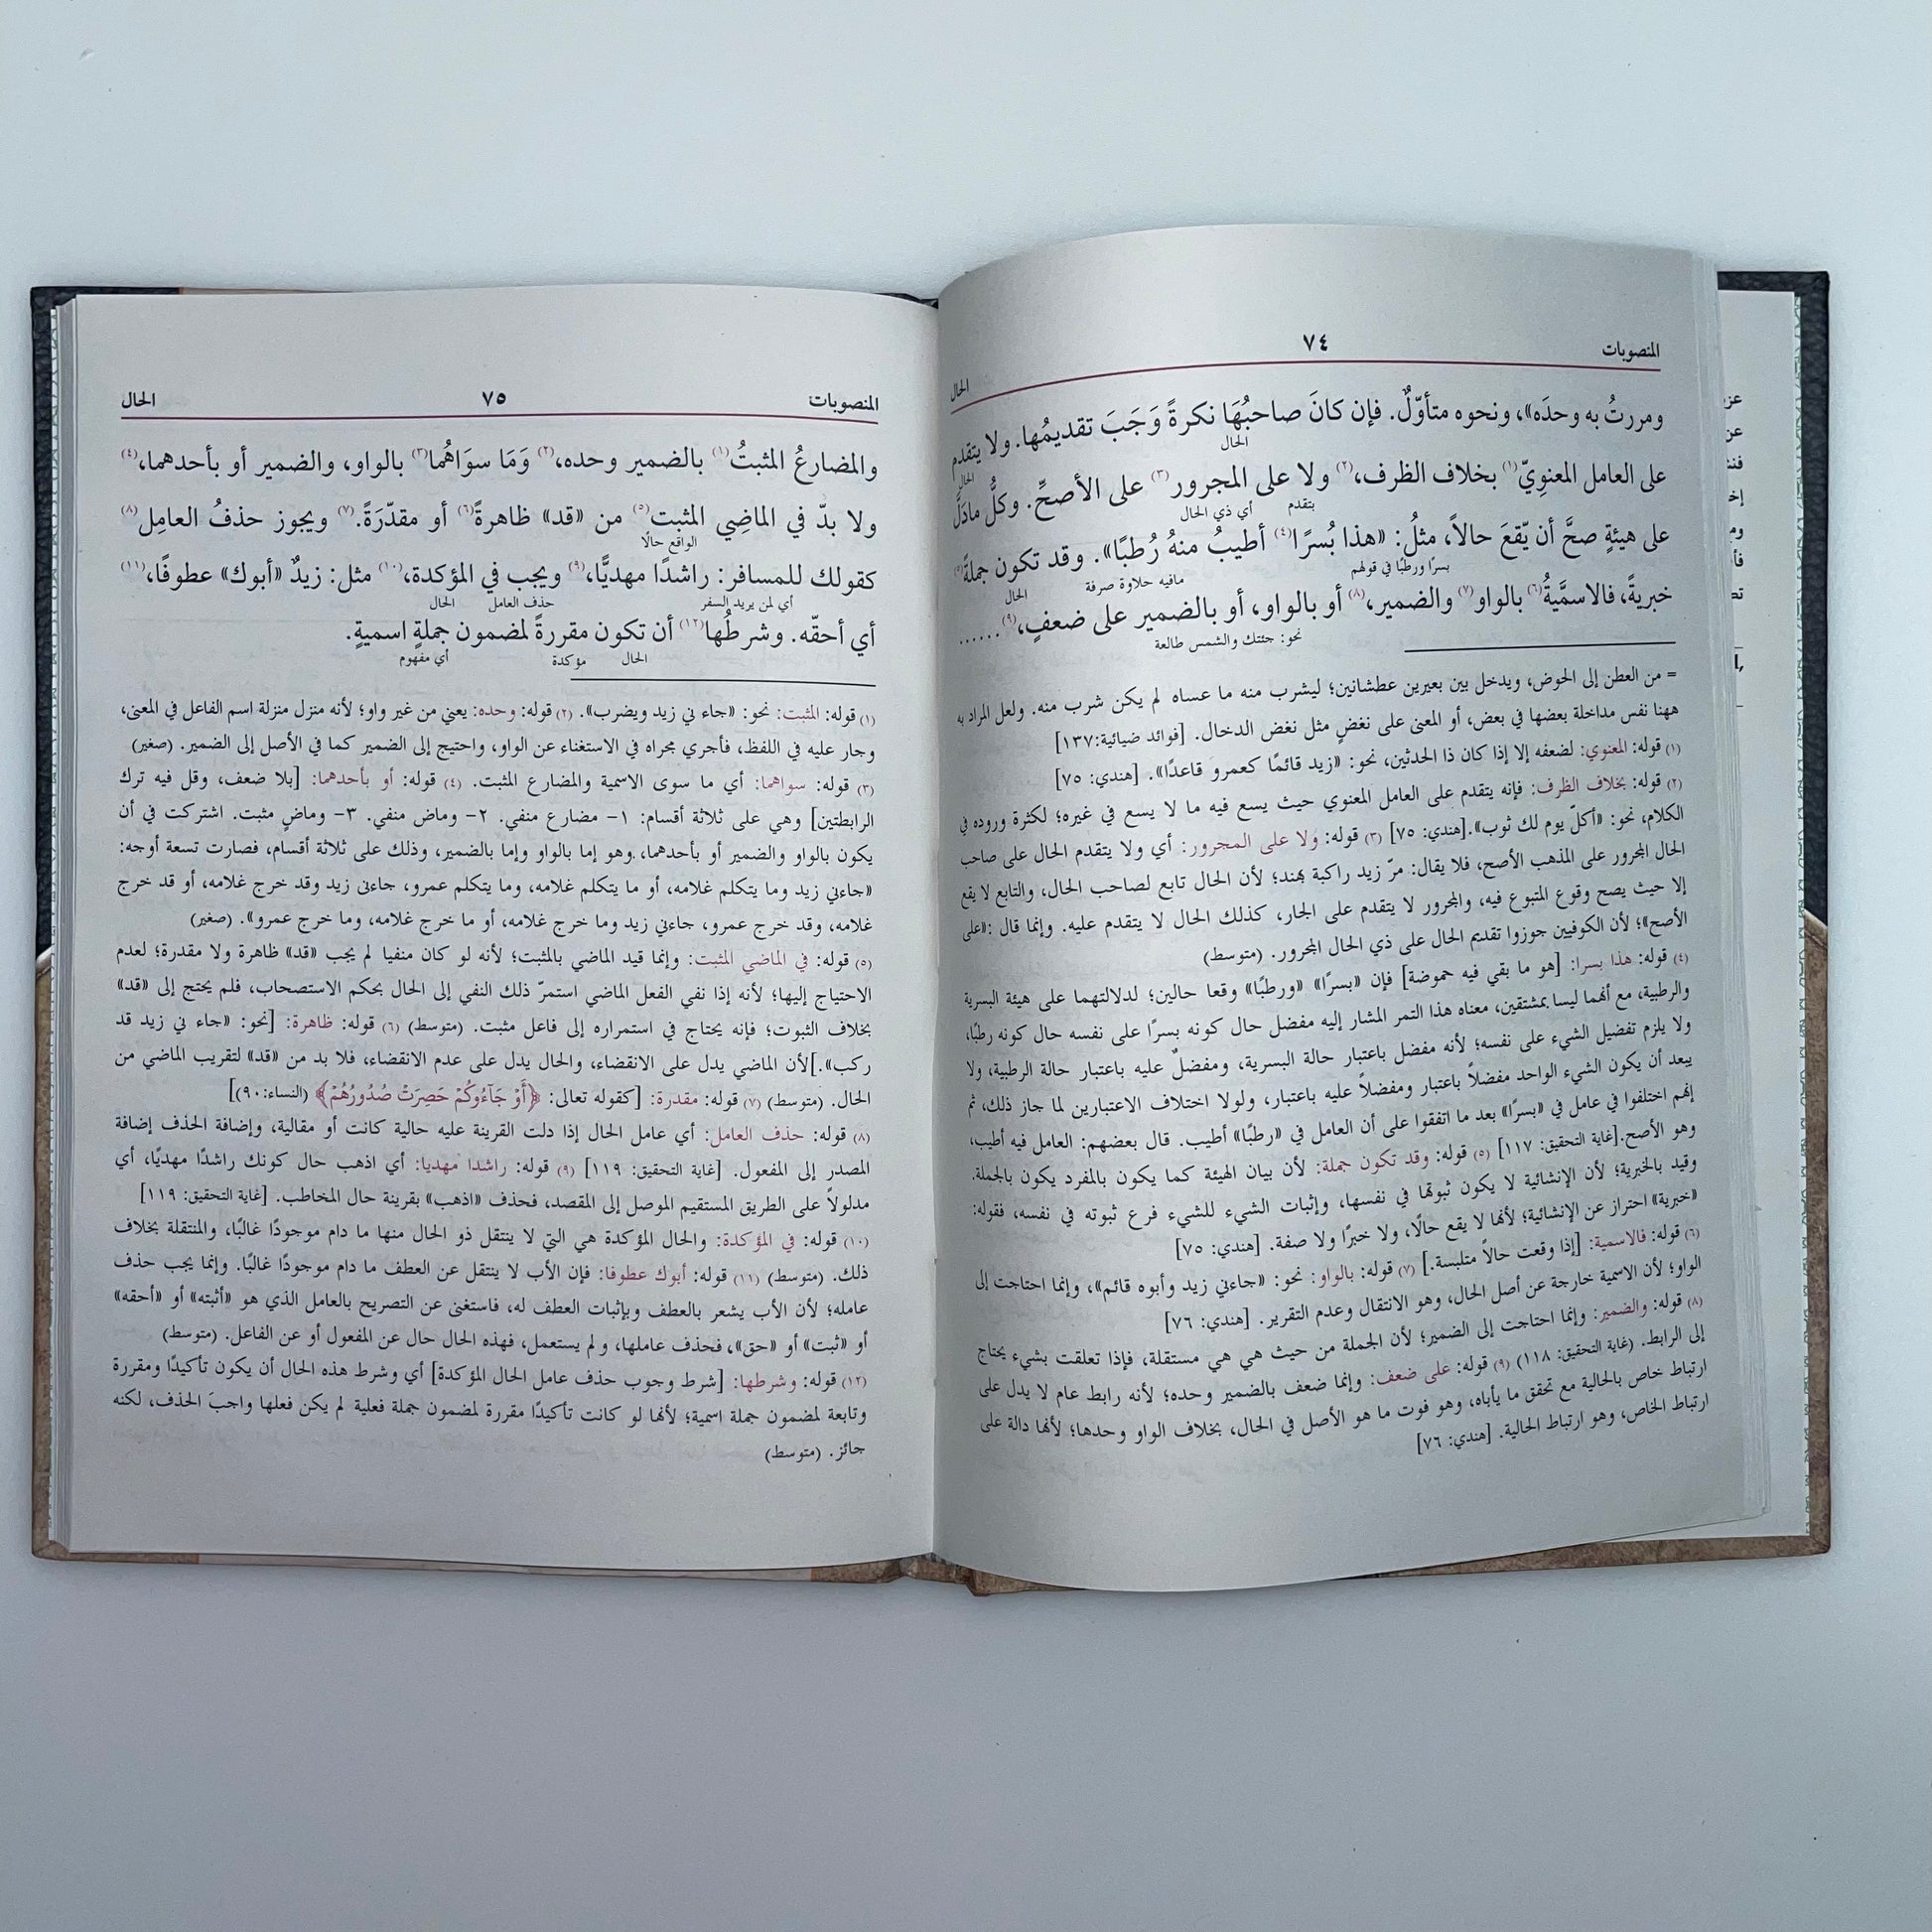 المنصوبات ٧٤ الحال
ومررتُ به وحدَه»، ونحوه متأوّلٌ. فإن كانَ صاحبُهَا نكرةً وَجَبَ تقديمُها. ولا يتقدم
الحال
على العامل المعنوِيّ(١) بخلاف الظرف،(٢) ولا على المجرور(٣) على الأصحِّ. وكلُّ مادَلَّ
الحال
بتقدم أي ذي الحال
على هيئةٍ صحَّ أن يّقعَ حالاً، مثلُ: «هذا بُسرًا(٤) أطيبُ منهُ رُطبًا». وقد تكون جملةً(٥)
بسرًا ورطبًا في قولهم مافيه حلاوة صرفة الحال
خبريةً، فالاسمَّيةُ(٦) بالواو(٧) والضمير،(٨) أو بالواو، أو بالضمير على ضعفٍ،(٩)......
نحو: جئتك والشمس طالعة
= من العطن إلى الحوض، ويدخل بين بعيرين عطشانين؛ ليشرب منه ما عساه لم يكن شرب منه. ولعل المراد به
ههنا نفس مداخلة بعضها في بعض، أو المعنى على نغضٍ مثل نغض الدخال. [فوائد ضيائية:١٣٧]
(١) قوله: المعنوي: لضعفه إلا إذا كان ذا الحدثين، نحو: «زيد قائمًا كعمرو قاعدًا». [هندي: ٧٥]
(٢) قوله: بخلاف الظرف: فإنه يتقدم على العامل المعنوي حيث يسع فيه ما لا يسع في غيره؛ لكثرة وروده في
الكلام، نحو: «أكلّ يوم لك ثوب».[هندي: ٧٥] (٣) قوله: ولا على المجرور: أي ولا يتقدم الحال على صاحب
الحال المجرور على المذهب الأصح، فلا يقال: مرّ زيد راكبة بهند؛ لأن الحال تابع لصاحب الحال، والتابع لا يقع
إلا حيث يصح وقوع المتبوع فيه، والمجرور لا يتقدم على الجار، كذلك الحال لا يتقدم عليه. وإنما قال :«على
الأصح»؛ لأن الكوفيين جوزوا تقديم الحال على ذي الحال المجرور. (متوسط)
(٤) قوله: هذا بسرا: [هو ما بقي فيه حموضة] فإن «بسرًا» «ورطبًا» وقعا حالين؛ لدلالتهما على هيئة البسرية
والرطبية، مع أنهما ليسا بمشتقين، معناه هذا التمر المشار إليه مفضل حال كونه بسرًا على نفسه حال كونه رطبًا،
ولا يلزم تفضيل الشيء على نفسه؛ لأنه مفضل باعتبار حالة البسرية، ومفضلٌ عليه باعتبار حالة الرطبية، ولا
يبعد أن يكون الشيء الواحد مفضلاً باعتبار ومفضلاً عليه باعتبار، ولولا اختلاف الاعتبارين لما جاز ذلك، ثم
إنهم اختلفوا في عامل في «بسرًا» بعد ما اتفقوا على أن العامل في «رطبًا» أطيب. قال بعضهم: العامل فيه أطيب،
وهو الأصح.[غاية التحقيق: ١١٧] (٥) قوله: وقد تكون جملة: لأن بيان الهيئة كما يكون بالمفرد يكون بالجملة.
وقيد بالخبرية؛ لأن الإنشائية لا يكون ثبوتها في نفسها، وإثبات الشيء للشيء فرع ثبوته في نفسه، فقوله:
«خبرية» احتراز عن الإنشائية؛ لأنها لا يقع حالًا، ولا خبرًا ولا صفة. [هندي: ٧٥]
(٦) قوله: فالاسمية: [إذا وقعت حالاً متلبسة.] (٧) قوله: بالواو: نحو: «جاءني زيد وأبوه قائم»، وإنما احتاجت إلى
الواو؛ لأن الاسمية خارجة عن أصل الحال، وهو الانتقال وعدم التقرير. [هندي: ٧٦]
(٨) قوله: والضمير: وإنما احتاجت إلى الضمير؛ لأن الجملة من حيث هي هي مستقلة، فإذا تعلقت بشيء يحتاج
إلى الرابط. (غاية التحقيق: ١١٨) (٩) قوله: على ضعف: وإنما ضعف بالضمير وحده؛ لأنه رابط عام لا يدل على
ارتباط خاص بالحالية مع تحقق ما يأباه، وهو فوت ما هو الأصل في الحال، بخلاف الواو وحدها؛ لأنها دالة على
ارتباط الخاص، وهو ارتباط الحالية. [هندي: ٧٦]
المنصوبات ٧٥ الحال
والمضارعُ المثبتُ(١) بالضمير وحده،(٢) وَمَا سوَاهُما(٣) بالواو، والضمير أو بأحدهما،(٤)
ولا بدّ في الماضِي المثبت(٥) من «قد» ظاهرةً(٦) أو مقدّرَةً.(٧) ويجوز حذفُ العامِل(٨)
الواقع حالًا
كقولك للمسافر: راشدًا مهديًّا،(٩) ويجب في المؤكدة،(١٠) مثل: زيدٌ «أبوك» عطوفًا،(١١)
أي لمن يريد السفر حذف العامل الحال
أي أحقّه. وشرطُها(١٢) أن تكون مقررةً لمضمون جملةٍ اسميةٍ.
الحال مؤكدة أي مفهوم
(١) قوله: المثبت: نحو: «جاء ني زيد ويضرب». (٢) قوله: وحده: يعني من غير واو؛ لأنه منزل منزلة اسم الفاعل في المعنى،
وجار عليه في اللفظ، فأجري مجراه في الاستغناء عن الواو، واحتيج إلى الضمير كما في الأصل إلى الضمير. (صغير)
(٣) قوله: سواهما: أي ما سوى الاسمية والمضارع المثبت. (٤) قوله: أو بأحدهما: [بلا ضعف، وقل فيه ترك
الرابطتين] وهي على ثلاثة أقسام: ١- مضارع منفي. ٢- وماض منفي. ٣- وماضٍ مثبت. اشتركت في أن
يكون بالواو والضمير أو بأحدهما، وهو إما بالواو وإما بالضمير، وذلك على ثلاثة أقسام، فصارت تسعة أوجه:
«جاءني زيد وما يتكلم غلامه، أو ما يتكلم غلامه، وما يتكلم عمرو، جاءنى زيد وقد خرج غلامه، أو قد خرج
غلامه، وقد خرج عمرو، جاءني زيد وما خرج غلامه، أو ما خرج غلامه، وما خرج عمرو». (صغير)
(٥) قوله: في الماضي المثبت: وإنما قيد الماضي بالمثبت؛ لأنه لو كان منفيا لم يجب «قد» ظاهرة ولا مقدرة؛ لعدم
الاحتياج إليها؛ لأنه إذا نفي الفعل الماضي استمرّ ذلك النفي إلى الحال بحكم الاستصحاب، فلم يحتج إلى «قد»
بخلاف الثبوت؛ فإنه يحتاج في استمراره إلى فاعل مثبت. (متوسط) (٦) قوله: ظاهرة: [نحو: «جاء ني زيد قد
ركب».]لأن الماضي يدل على الانقضاء، والحال يدل على عدم الانقضاء، فلا بد من «قد» لتقريب الماضي من
الحال. (متوسط) (٧) قوله: مقدرة: [كقوله تعالى: ﴿أَوْ جَآءُوكُمْ حَصِرَتْ صُدُورُهُمْ﴾ (النساء:٩٠)]
(٨) قوله: حذف العامل: أي عامل الحال إذا دلت القرينة عليه حالية كانت أو مقالية، وإضافة الحذف إضافة
المصدر إلى المفعول. [غاية التحقيق: ١١٩] (٩) قوله: راشدا مهديا: أي اذهب حال كونك راشدًا مهديًا، أي
مدلولاً على الطريق المستقيم الموصل إلى المقصد، فحذف «اذهب» بقرينة حال المخاطب. [غاية التحقيق: ١١٩]
(١٠) قوله: في المؤكدة: والحال المؤكدة هي التي لا ينتقل ذو الحال منها ما دام موجودًا غالبًا، والمنتقلة بخلاف
ذلك. (متوسط) (١١) قوله: أبوك عطوفا: فإن الأب لا ينتقل عن العطف ما دام موجودًا غالبًا. وإنما يجب حذف
عامله؛ لأن الأب يشعر بالعطف وبإثبات العطف له، فاستغنى عن التصريح بالعامل الذي هو «أثبته» أو «أحقه»
أو «ثبت» أو «حق»، فحذف عاملها، ولم يستعمل، فهذه الحال حال عن المفعول أو عن الفاعل. (متوسط)
(١٢) قوله: وشرطها: [شرط وجوب حذف عامل الحال المؤكدة] أي وشرط هذه الحال أن يكون تأكيدًا ومقررة
وتابعة لمضمون جملة اسمية؛ لأنها لو كانت تأكيدًا مقررة لمضمون جملة فعلية لم يكن فعلها واجبَ الحذف، لكنه
جائز. (متوسط)